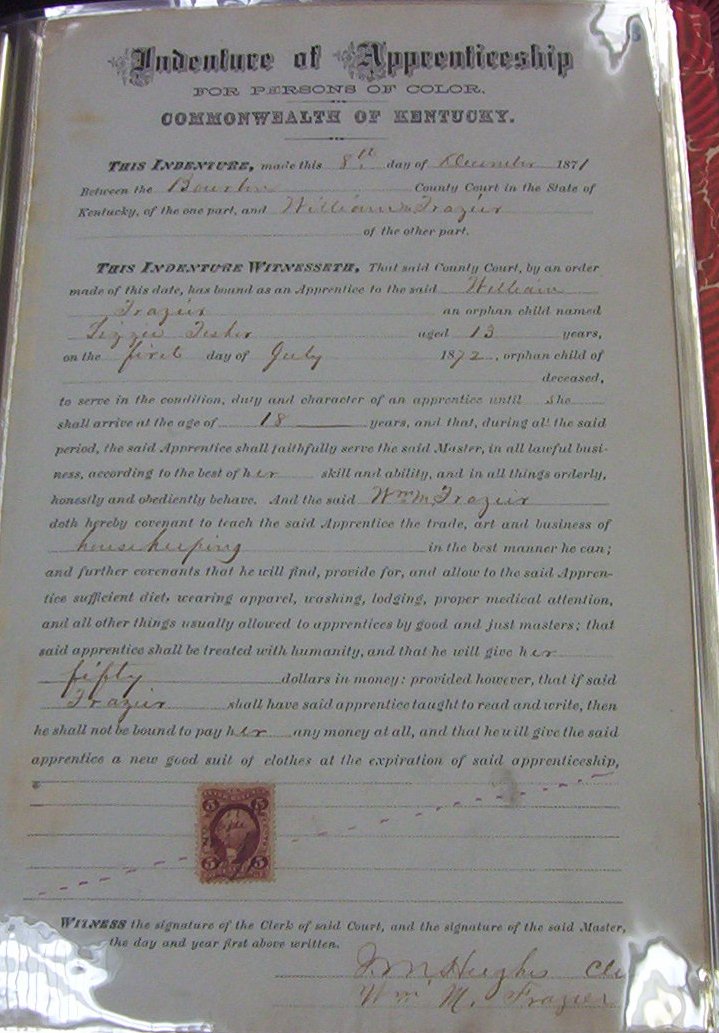 Indenture of Apprenticeship
FOR PERSONS OF COLOR.
COMMONWEALTH OF KENTUCKY.
THIS INDENTURE, made this 8th day of December 1871
Between the Bourbon County Court in the State of
Kentucky, of the one part, and William M Frazier
of the other part.
THIS INDENTURE WITNESSETH, That said County Court, by an order
made of this date, has bound as an Apprentice to the said William
Frazier an orphan child named
Lizzie Fisher aged 13 years,
on the first day of July 1872, orphan child of
deceased,
to serve in the condition, duty and character of an apprentice until She
shall arrive at the age of 18 years, and that, during all the said
period, the said Apprentice shall faithfully serve the said Master, in all lawful busi-
ness, according to the best of her skill and ability, and in all things orderly,
honestly and obediently behave. And the said Wm M Frazier
doth hereby covenant to teach the said Apprentice the trade, art and business of
housekeeping in the best manner he can;
and further covenants that he will find, provide for, and allow to the said Appren-
tice sufficient diet, wearing apparel, washing, lodging, proper medical attention,
and all other things usually allowed to apprentices by good and just masters; that
said apprentice shall be treated with humanity, and that he will give her
fifty dollars in money: provided however, that if said
Frazier shall have said apprentice taught to read and write, then
he shall not be bound to pay her any money at all, and that he will give the said
apprentice a new good suit of clothes at the expiration of said apprenticeship,
5 5
5 5
WITNESS the signature of the Clerk of said Court, and the signature of the said Master,
the day and year first above written.
J. M Hughes Cl
Wm M. Frazier